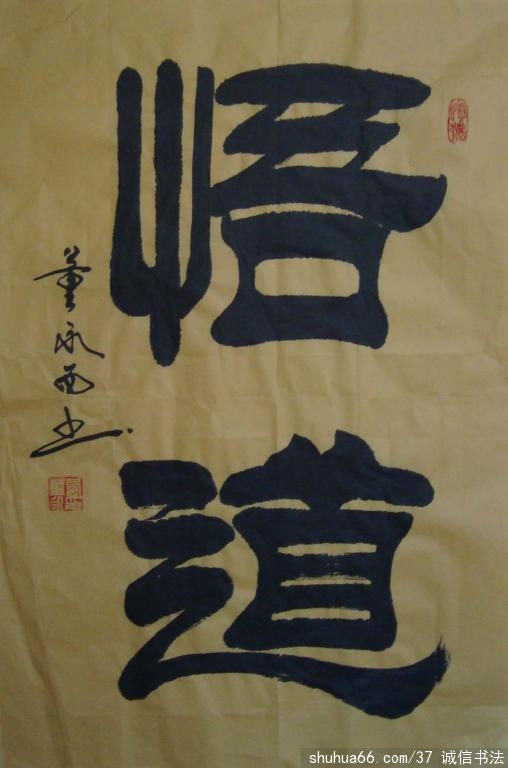 悟道
董永西书
shuhua66.com/37 诚信书法